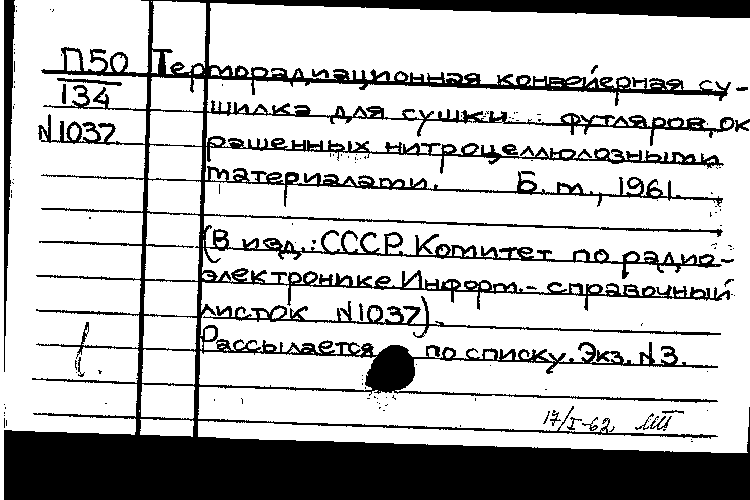 П50 Терморадиационная конвейерная су-
134 шилка для сушки футляров, ок
N1037 рашенных нитроцеллюлозными
материалами. Б.м., 1961.
(В изд.: СССР. Комитет по радио-
электронике. Информ.- справочный
листок N1037).
Рассылается по списку. Экз. N3.
17/I-62